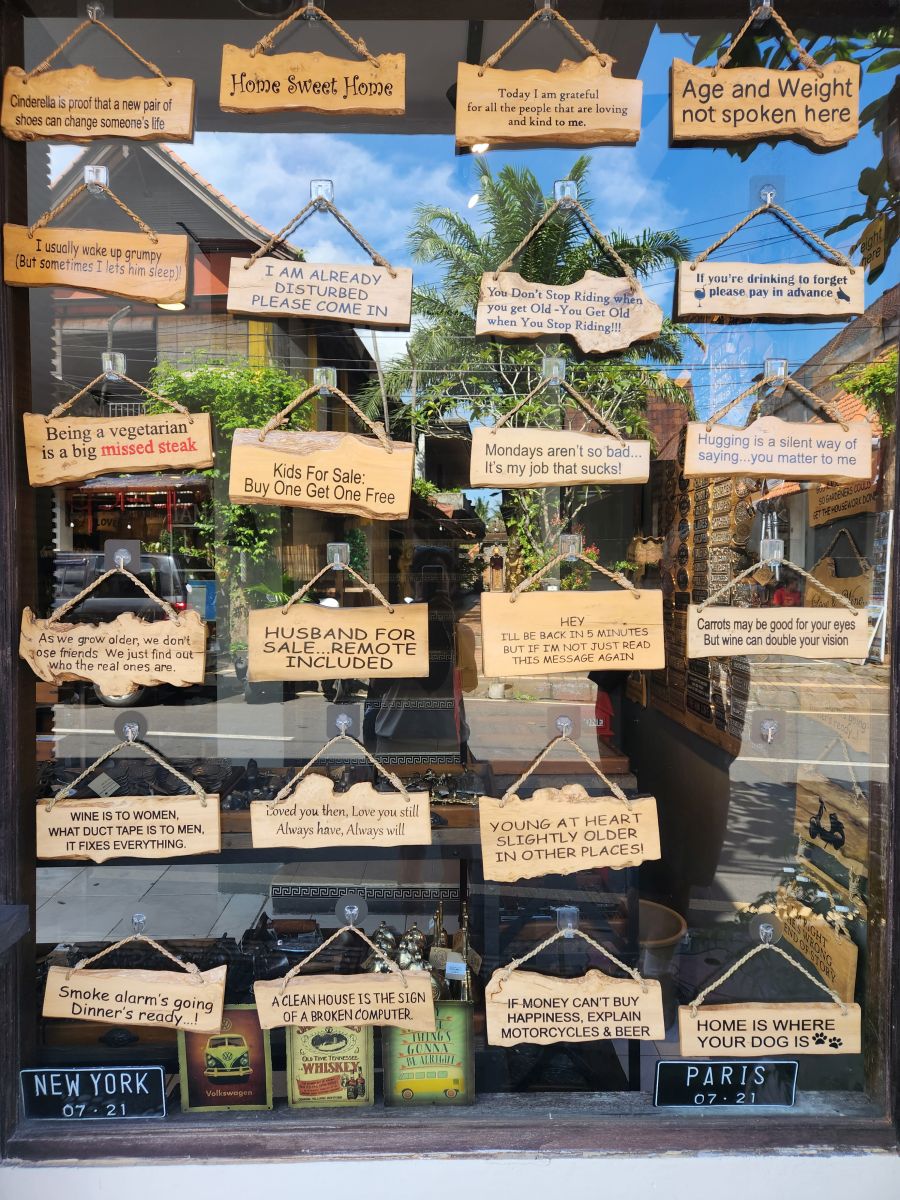 Cinderella is proof that a new pair of
shoes can change someone's life
Home Sweet Home
Today I am grateful
for all the people that are loving
and kind to me.
Age and Weight
not spoken here
I usually wake up grumpy
(But sometimes I lets him sleep)!
I AM ALREADY
DISTURBED
PLEASE COME IN
You Don't Stop Riding when
you get Old -You Get Old
when You Stop Riding!!!
If you're drinking to forget
please pay in advance
Being a vegetarian
is a big missed steak
Kids For Sale:
Buy One Get One Free
Mondays aren't so bad...
It's my job that sucks!
Hugging is a silent way of
saying...you matter to me
SO GARDENERS COULD
GET THE HOUSEWORK DONE
As we grow older, we don't
ose friends. We just find out
who the real ones are.
HUSBAND FOR
SALE...REMOTE
INCLUDED
HEY
I'LL BE BACK IN 5 MINUTES
BUT IF I'M NOT JUST READ
THIS MESSAGE AGAIN
Carrots may be good for your eyes
But wine can double your vision
WINE IS TO WOMEN,
WHAT DUCT TAPE IS TO MEN,
IT FIXES EVERYTHING.
Loved you then, Love you still
Always have, Always will
YOUNG AT HEART
SLIGHTLY OLDER
IN OTHER PLACES!
Smoke alarm's going
Dinner's ready...!
A CLEAN HOUSE IS THE SIGN
OF A BROKEN COMPUTER.
IF MONEY CAN'T BUY
HAPPINESS, EXPLAIN
MOTORCYCLES & BEER
END OF STORY
HOME IS WHERE
YOUR DOG IS
NEW YORK
07 · 21
Volkswagen
OLD TIME TENNESSEE
WHISKEY
THING'S
GONNA
BE ALRIGHT
PARIS
07 · 21